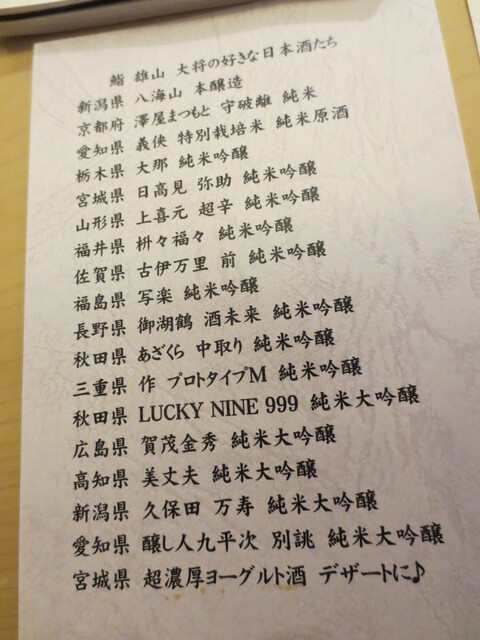 鮨 雄山 大将の好きな日本酒たち
新潟県 八海山 本醸造
京都府 澤屋まつもと 守破離 純米
愛知県 義侠 特別栽培米 純米原酒
栃木県 大那 純米吟醸
宮城県 日高見 弥助 純米吟醸
山形県 上喜元 超辛 純米吟醸
福井県 枡々福々 純米吟醸
佐賀県 古伊万里 前 純米吟醸
福島県 写楽 純米吟醸
長野県 御湖鶴 酒未来 純米吟醸
秋田県 あざくら 中取り 純米吟醸
三重県 作 プロトタイプM 純米吟醸
秋田県 LUCKY NINE 999 純米大吟醸
広島県 賀茂金秀 純米大吟醸
高知県 美丈夫 純米大吟醸
新潟県 久保田 万寿 純米大吟醸
愛知県 醸し人九平次 別誂 純米大吟醸
宮城県 超濃厚ヨーグルト酒 デザートに♪